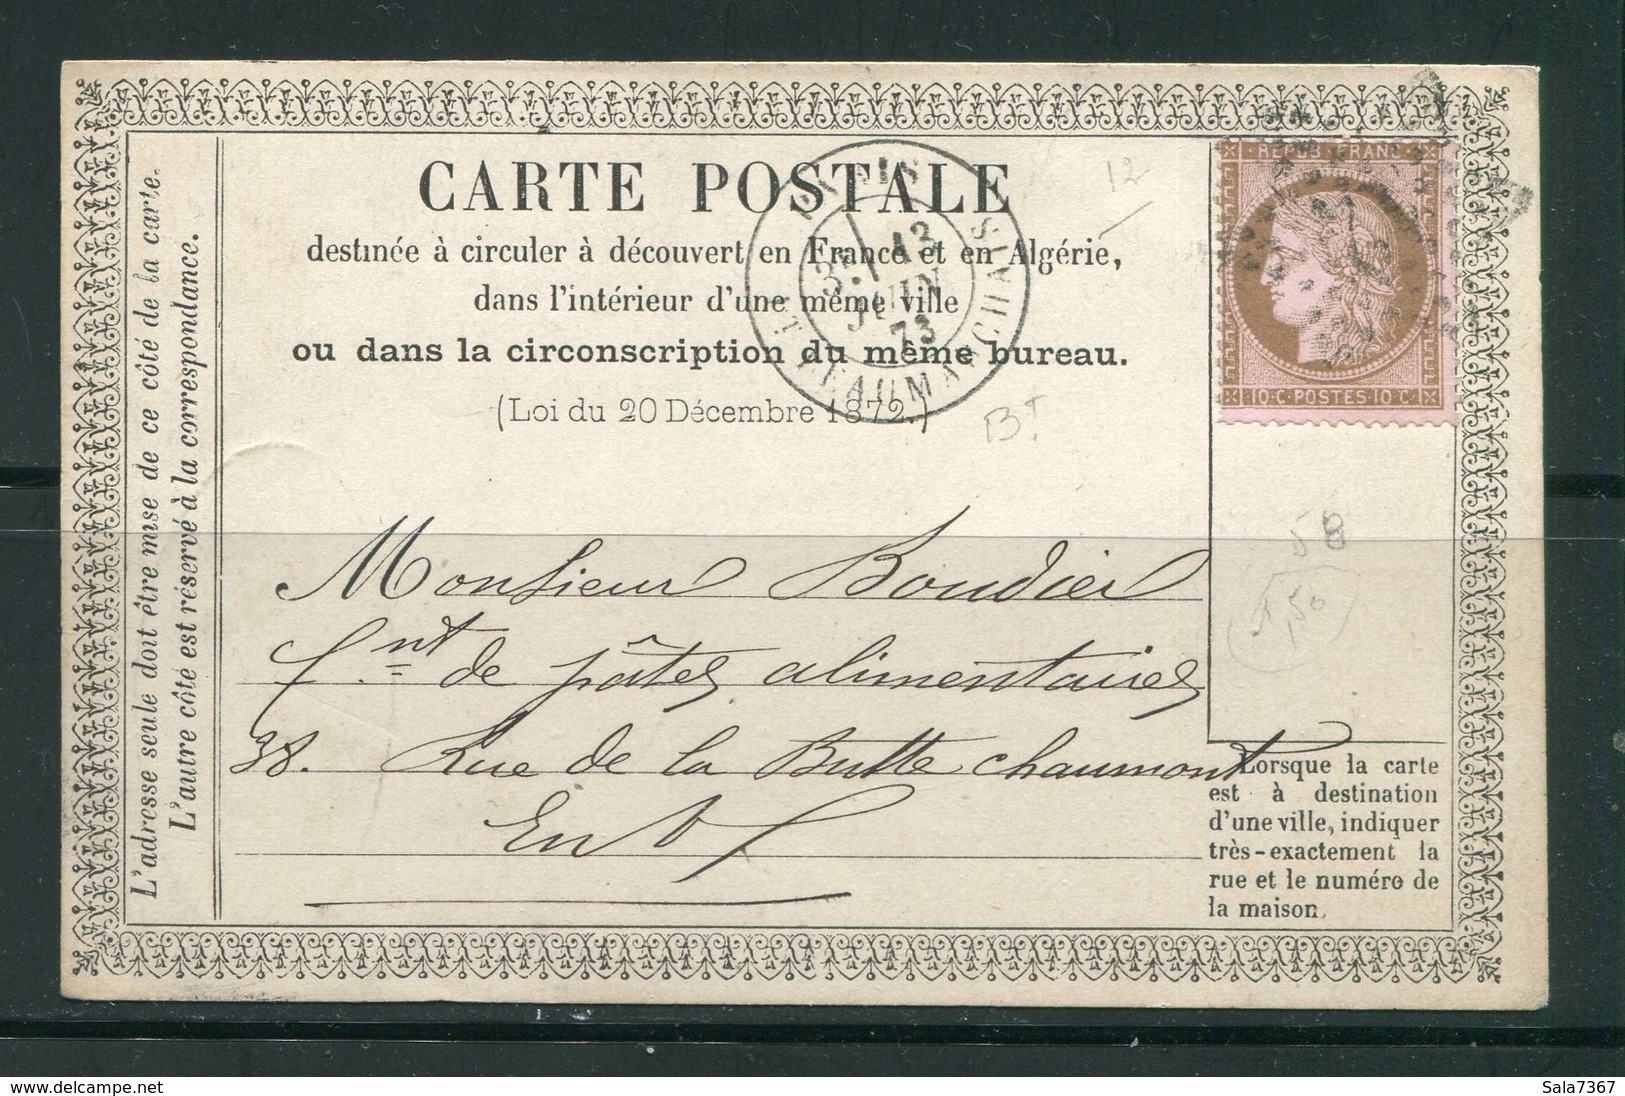 CARTE POSTALE
destinée à circuler à découvert en France et en Algérie,
dans l'intérieur d'une même ville
ou dans la circonscription du même bureau.
(Loi du 20 Décembre 1872.)
PARIS
3E
13
JUIN
73
BT BEAUMARCHAIS
12
BT
RÉPUB. FRANC.
10 C. POSTES 10 C.
L'adresse seule doit être mise de ce côté de la carte.
L'autre côté est réservé à la correspondance.
58
1,50
Monsieur Boudier
f.nt de pâtes alimentaires
38. Rue de la Butte chaumont
En V
Lorsque la carte
est à destination
d'une ville, indiquer
très-exactement la
rue et le numéro de
la maison.
www.delcampe.net
Sala7367